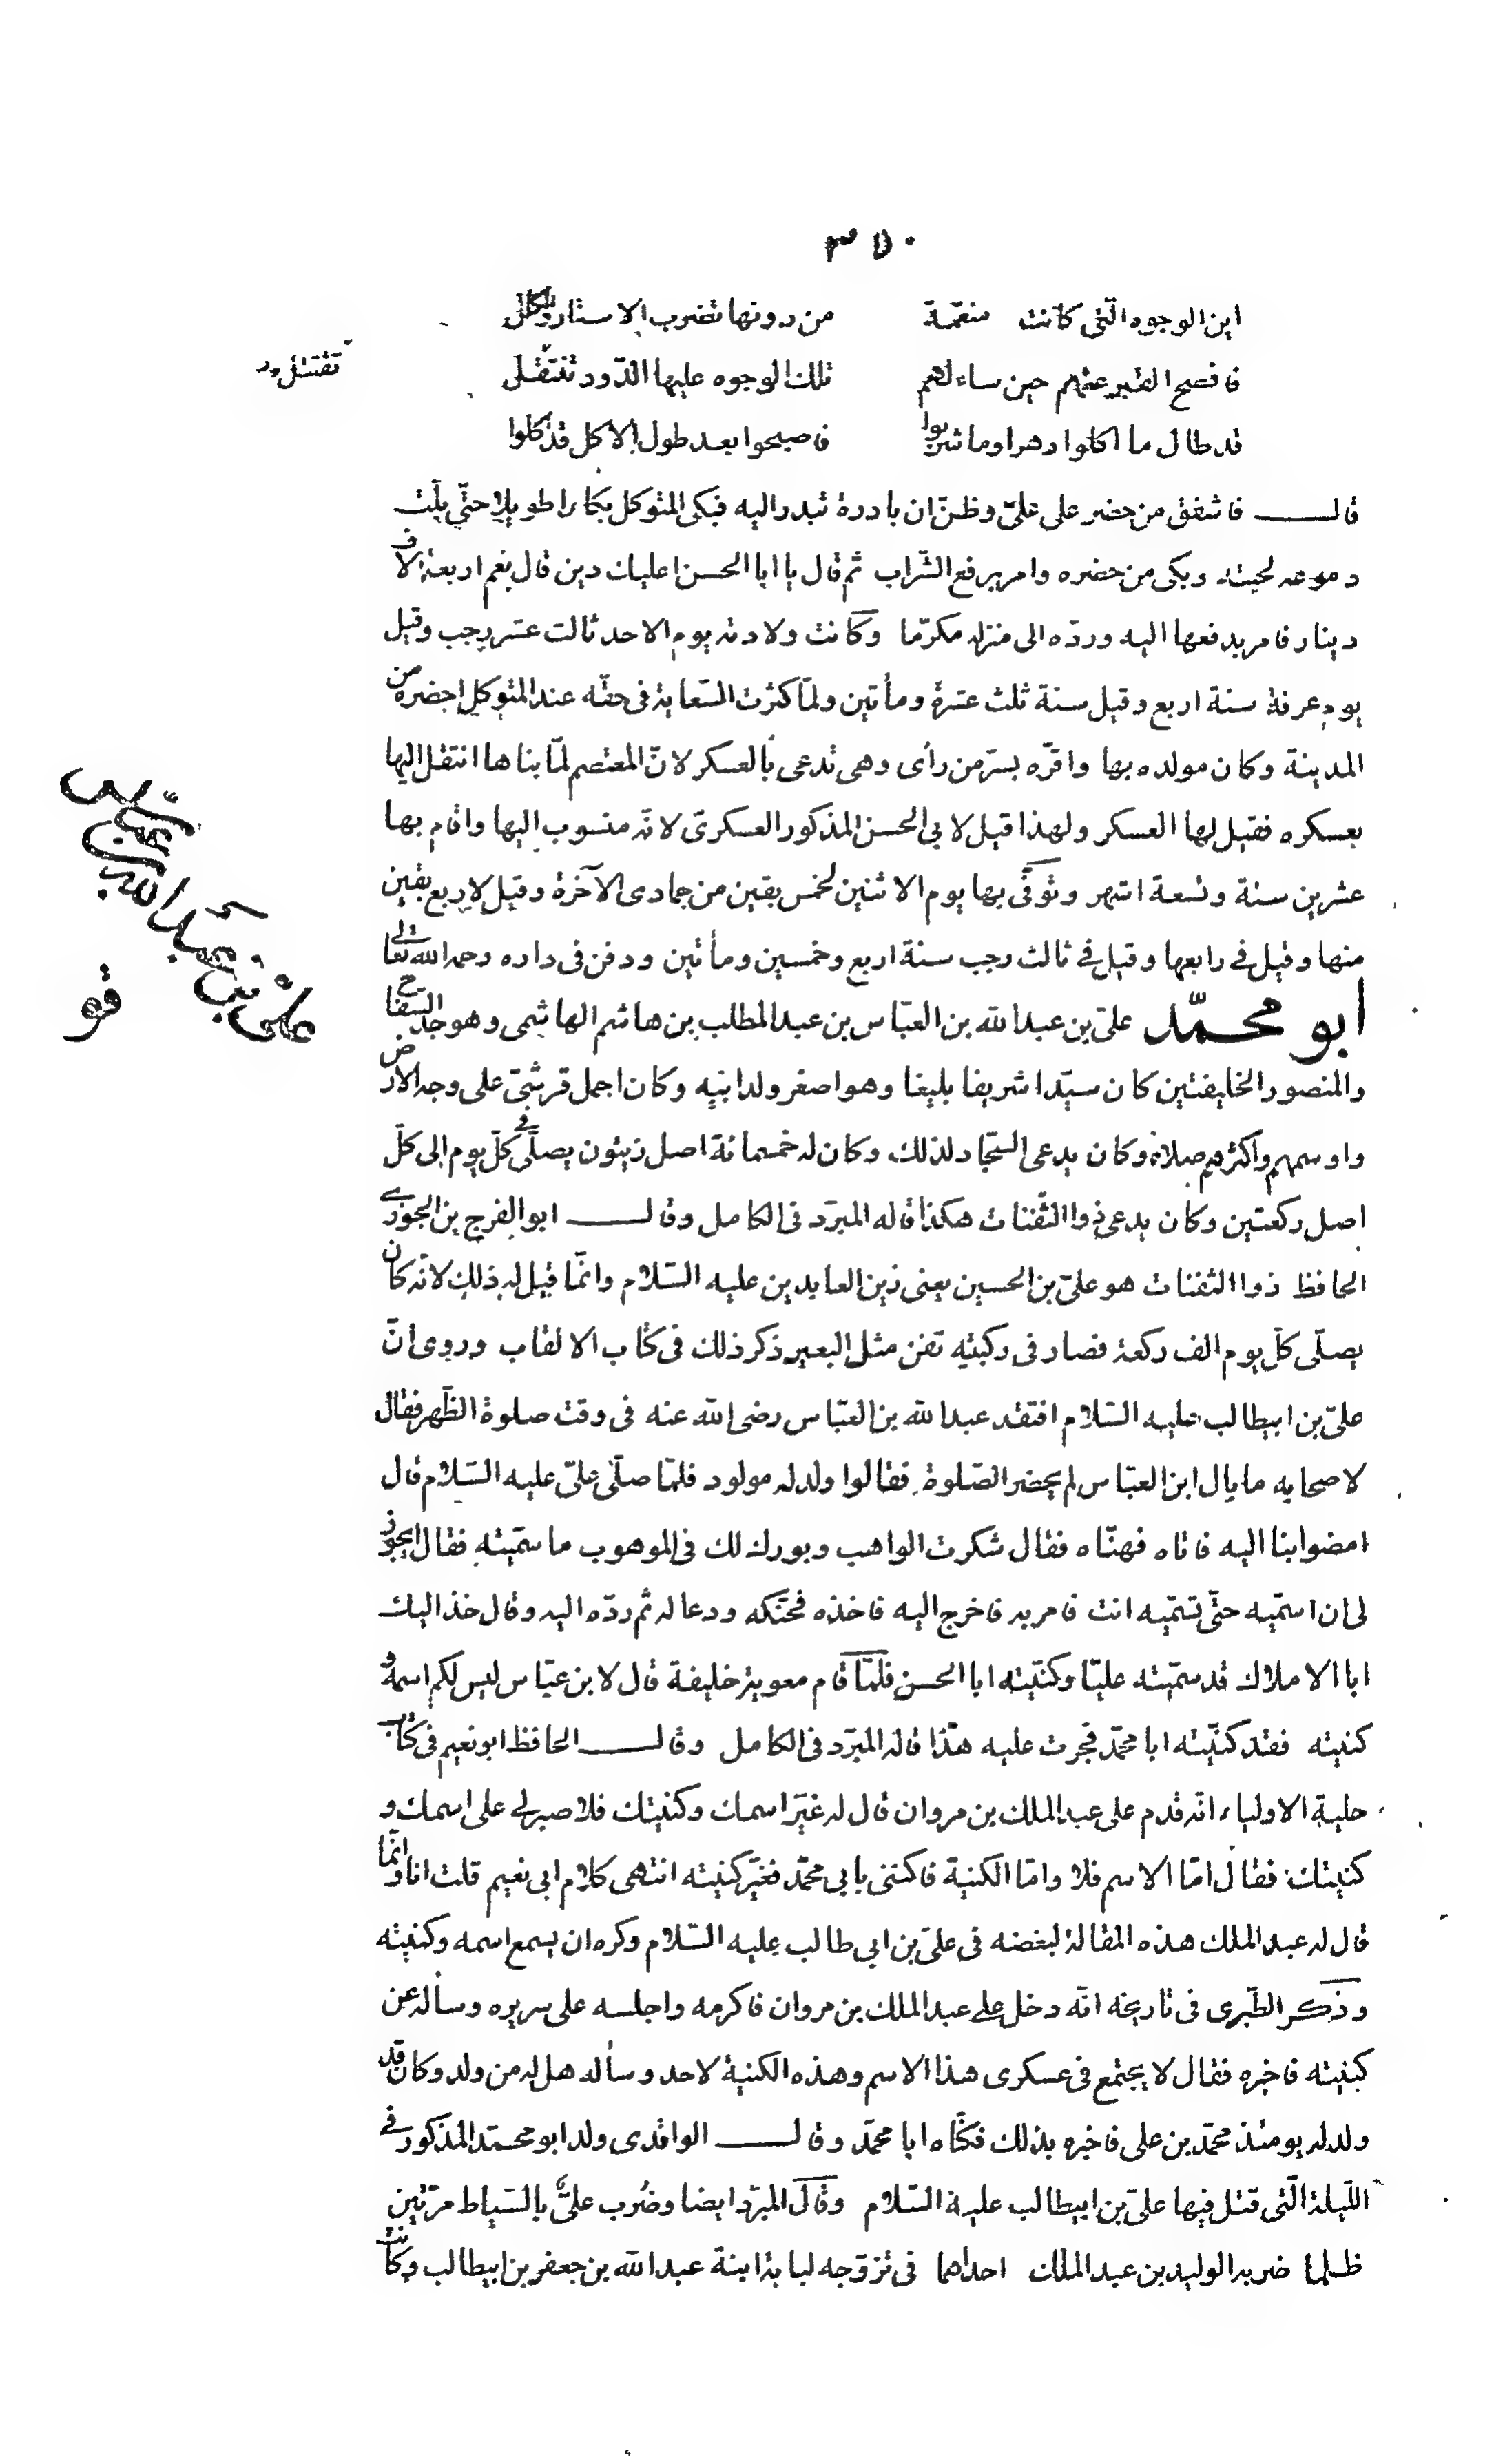 ٣٥٠
اين الوجوه الّتى كانت منعّمة من دونها تضرب الاستار والكلل
فافصح القبر عنهم حين ساءلهم تلك الوجوه عليها الدّود تنتقل
تقتتل
قد طال ما اكلوا دهرا وما شربوا فاصبحوا بعد طول الاكل قد اكلوا
قال فاشفق من حضر على علىّ وظنّ ان بادرة تبدر اليه فبكى المتوكل بكاء طويلا حتّى بلّت
دموعه لحيته وبكى من حضره وامر برفع الشّراب ثم قال يا ابا الحسن اعليك دين قال نعم اربعة الاف
دينار فامر بدفعها اليه وردّه الى منزله مكرّما وكانت ولادته يوم الاحد ثالث عشر رجب وقيل
يوم عرفة سنة اربع وقيل سنة ثلث عشرة ومأتين ولمّا كثرت السّعاية فى حقّه عند المتوكل احضره من
المدينة وكان مولده بها واقرّه بسرّ من رأى وهى تدعى بالعسكر لانّ المعتصم لمّا بناها انتقل اليها
بعسكره فقيل لها العسكر ولهذا قيل لابى الحسن المذكور العسكرىّ لانّه منسوب اليها واقام بها
عشرين سنة وتسعة اشهر وتوفّى بها يوم الاثنين لخمس بقين من جمادى الآخرة وقيل لاربع بقين
منها وقيل فى رابعها وقيل فى ثالث رجب سنة اربع وخمسين ومأتين ودفن فى داره رحمه الله تعالى
ابو محمّد علىّ بن عبد الله بن العبّاس بن عبد المطلب بن هاشم الهاشمى وهو جدّ السّفاح
علىّ بن عبد الله بن عبّاس
والمنصور الخليفتين كان سيّدا شريفا بليغا وهو اصغر ولد ابيه وكان اجمل قرشىّ على وجه الارض
واوسمهم واكثرهم صلاة وكان يدعى السّجّاد لذلك وكان له خمسمائة اصل زيتون يصلّى فى كلّ يوم الى كلّ
اصل ركعتين وكان يدعى ذوا الثّفنات هكذا قاله المبرّد فى الكامل وقال ابو الفرج بن الجوزى
الحافظ ذوا الثفنات هو علىّ بن الحسين يعنى زين العابدين عليه السّلام وانّما قيل له ذلك لانّه كان
يصلّى كلّ يوم الف ركعة فصار فى ركبتيه ثفن مثل البعير ذكر ذلك فى كتاب الالقاب وروى انّ
علىّ بن ابيطالب عليه السّلام افتقد عبد الله بن العبّاس رضى الله عنه فى وقت صلوة الظّهر فقال
لاصحابه ما بال ابن العبّاس لم يحضر الصّلوة فقالوا ولد له مولود فلمّا صلّى علىّ عليه السّلام قال
امضوا بنا اليه فاتاه فهنّاه فقال شكرت الواهب وبورك لك فى الموهوب ما سمّيته فقال ايجوز
لى ان اسمّيه حتّى تسمّيه انت فامر به فاخرج اليه فاخذه فحنّكه ودعا له ثم ردّه اليه وقال خذ اليك
ابا الاملاك قد سمّيته عليّا وكنّيته ابا الحسن فلمّا قام معوية خليفة قال لابن عبّاس ليس لكم اسمه و
كنيته فقد كنّيته ابا محمّد فجرت عليه هذا قاله المبرّد فى الكامل وقال الحافظ ابو نعيم فى كتاب
حلية الاولياء انّه قدم على عبد الملك بن مروان قال له غيّر اسمك وكنيتك فلا صبر لى على اسمك و
كنيتك فقال امّا الاسم فلا وامّا الكنية فاكتنى بابى محمّد فغيّر كنيته انتهى كلام ابى نعيم قلت انا وانّما
قال له عبد الملك هذه المقالة لبغضه فى علىّ بن ابى طالب عليه السّلام وكره ان يسمع اسمه وكنيته
وذكر الطّبرى فى تاريخه انّه دخل على عبد الملك بن مروان فاكرمه واجلسه على سريره وسأله عن
كنيته فاخبره فقال لا يجتمع فى عسكرى هذا الاسم وهذه الكنية لاحد وسأله هل له من ولد وكان قد
ولد له يومئذ محمّد بن على فاخبره بذلك فكنّاه ابا محمّد وقال الواقدى ولد ابو محمّد المذكور فى
اللّيلة الّتى قتل فيها علىّ بن ابيطالب عليه السّلام وقال المبرّد ايضا وضُرب علىٌّ بالسّياط مرّتين
ظلما ضربه الوليد بن عبد الملك احداهما فى تزوّجه لبابة ابنة عبد الله بن جعفر بن ابيطالب وكانت